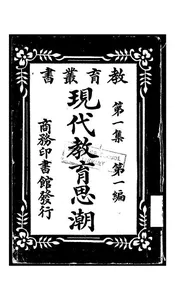 教育叢書
第一集 第一編
現代教育思潮
商務印書館發行